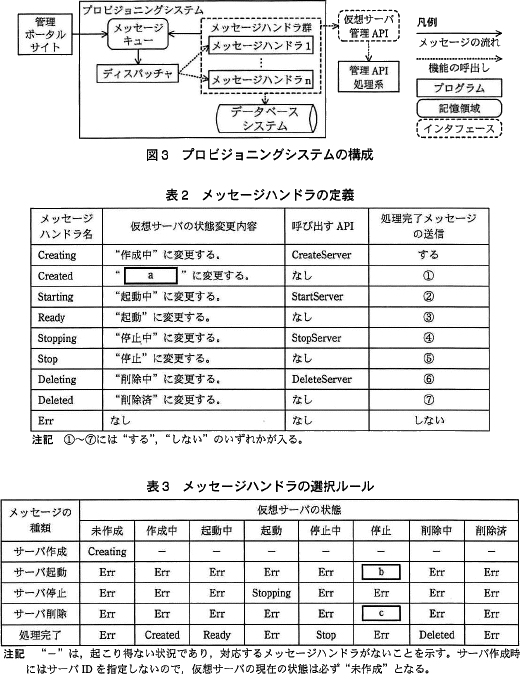 プロビジョニングシステム
管理
ポータル
サイト
メッセージ
キュー
ディスパッチャ
メッセージハンドラ群
メッセージハンドラ1
メッセージハンドラn
データベース
システム
仮想サーバ
管理API
管理API
処理系
凡例
メッセージの流れ
機能の呼出し
プログラム
記憶領域
インタフェース
図3 プロビジョニングシステムの構成
表2 メッセージハンドラの定義
メッセージハンドラ名 仮想サーバの状態変更内容 呼び出すAPI 処理完了メッセージの送信
Creating “作成中”に変更する。 CreateServer する
Created “ a ”に変更する。 なし ①
Starting “起動中”に変更する。 StartServer ②
Ready “起動”に変更する。 なし ③
Stopping “停止中”に変更する。 StopServer ④
Stop “停止”に変更する。 なし ⑤
Deleting “削除中”に変更する。 DeleteServer ⑥
Deleted “削除済”に変更する。 なし ⑦
Err なし なし しない
注記 ①~⑦には“する”,“しない”のいずれかが入る。
表3 メッセージハンドラの選択ルール
メッセージの種類 仮想サーバの状態
未作成 作成中 起動中 起動 停止中 停止 削除中 削除済
サーバ作成 Creating － － － － － － －
サーバ起動 Err Err Err Err Err b Err Err
サーバ停止 Err Err Err Stopping Err Err Err Err
サーバ削除 Err Err Err Err Err c Err Err
処理完了 Err Created Ready Err Stop Err Deleted Err
注記 “－”は,起こり得ない状況であり,対応するメッセージハンドラがないことを示す。サーバ作成時
にはサーバIDを指定しないので,仮想サーバの現在の状態は必ず“未作成”となる。